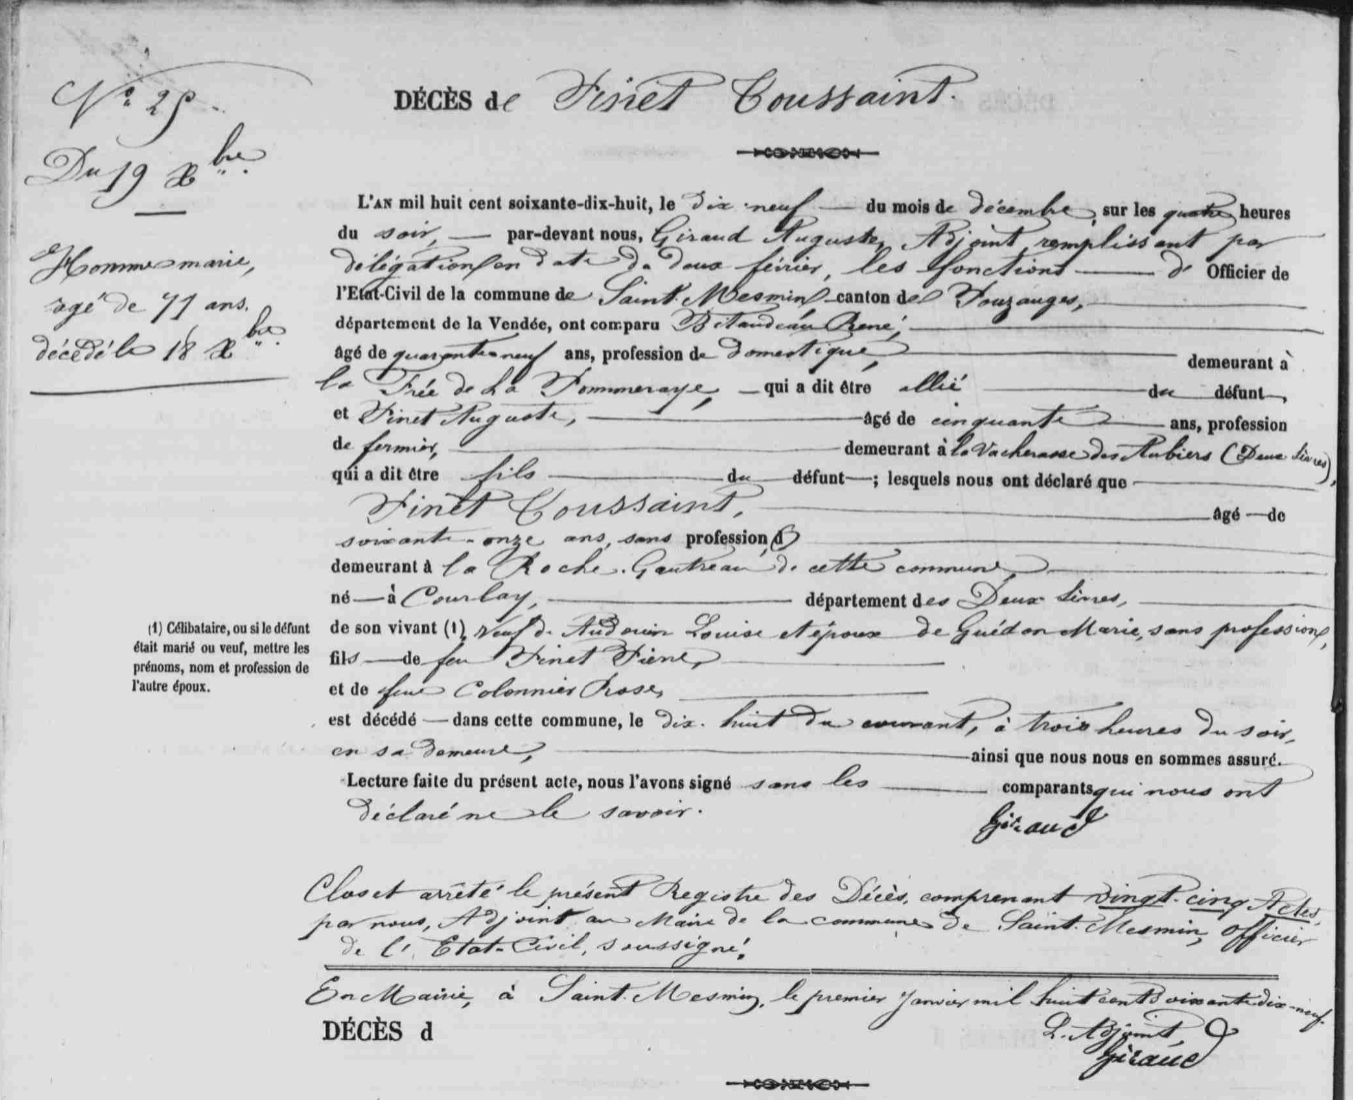 DÉCÈS de Finet Toussaint.
N° 25.
Du 19 Xbre.
Homme marié,
agé de 71 ans.
décédé le 18 Xbre.
L'AN mil huit cent soixante-dix-huit, le dix neuf du mois de décembre, sur les quatre heures
du soir, par-devant nous, Giraud Auguste, Adjoint, remplissant par
délégation en date du deux février, les fonctions d' Officier de
l'Etat-Civil de la commune de Saint Mesmin canton de Pouzauges,
département de la Vendée, ont comparu René,
âgé de quarante neuf ans, profession de domestique, demeurant à
la Frée de La Pommeraye, qui a dit être allié du défunt,
et Finet Auguste, âgé de cinquante ans, profession
de fermier, demeurant à la Vacherasse des Aubiers (Deux Sèvres),
qui a dit être fils du défunt ; lesquels nous ont déclaré que
Finet Toussaint, âgé de
soixante-onze ans, sans profession d
demeurant à la Roche-Gautreau de cette commune,
né à Courlay, département des Deux Sèvres,
(1) Célibataire, ou si le défunt
était marié ou veuf, mettre les
prénoms, nom et profession de
l'autre époux.
de son vivant (1) veuf de Audouin Louise et époux de Guédon Marie, sans profession,
fils de feu Finet Pierre,
et de feue Colonnier Rose,
est décédé dans cette commune, le dix-huit du courant, à trois heures du soir,
en sa demeure, ainsi que nous nous en sommes assuré.
Lecture faite du présent acte, nous l'avons signé sans les comparants qui nous ont
déclaré ne le savoir.
Giraud
Clos et arrêté le présent Registre des Décès, comprenant vingt-cinq Actes,
par nous, Adjoint au Maire de la commune de Saint-Mesmin, officier
de l'Etat-Civil, soussigné.
En Mairie, à Saint-Mesmin, le premier Janvier mil huit cent soixante-dix-neuf.
L'Adjoint,
Giraud
DÉCÈS d